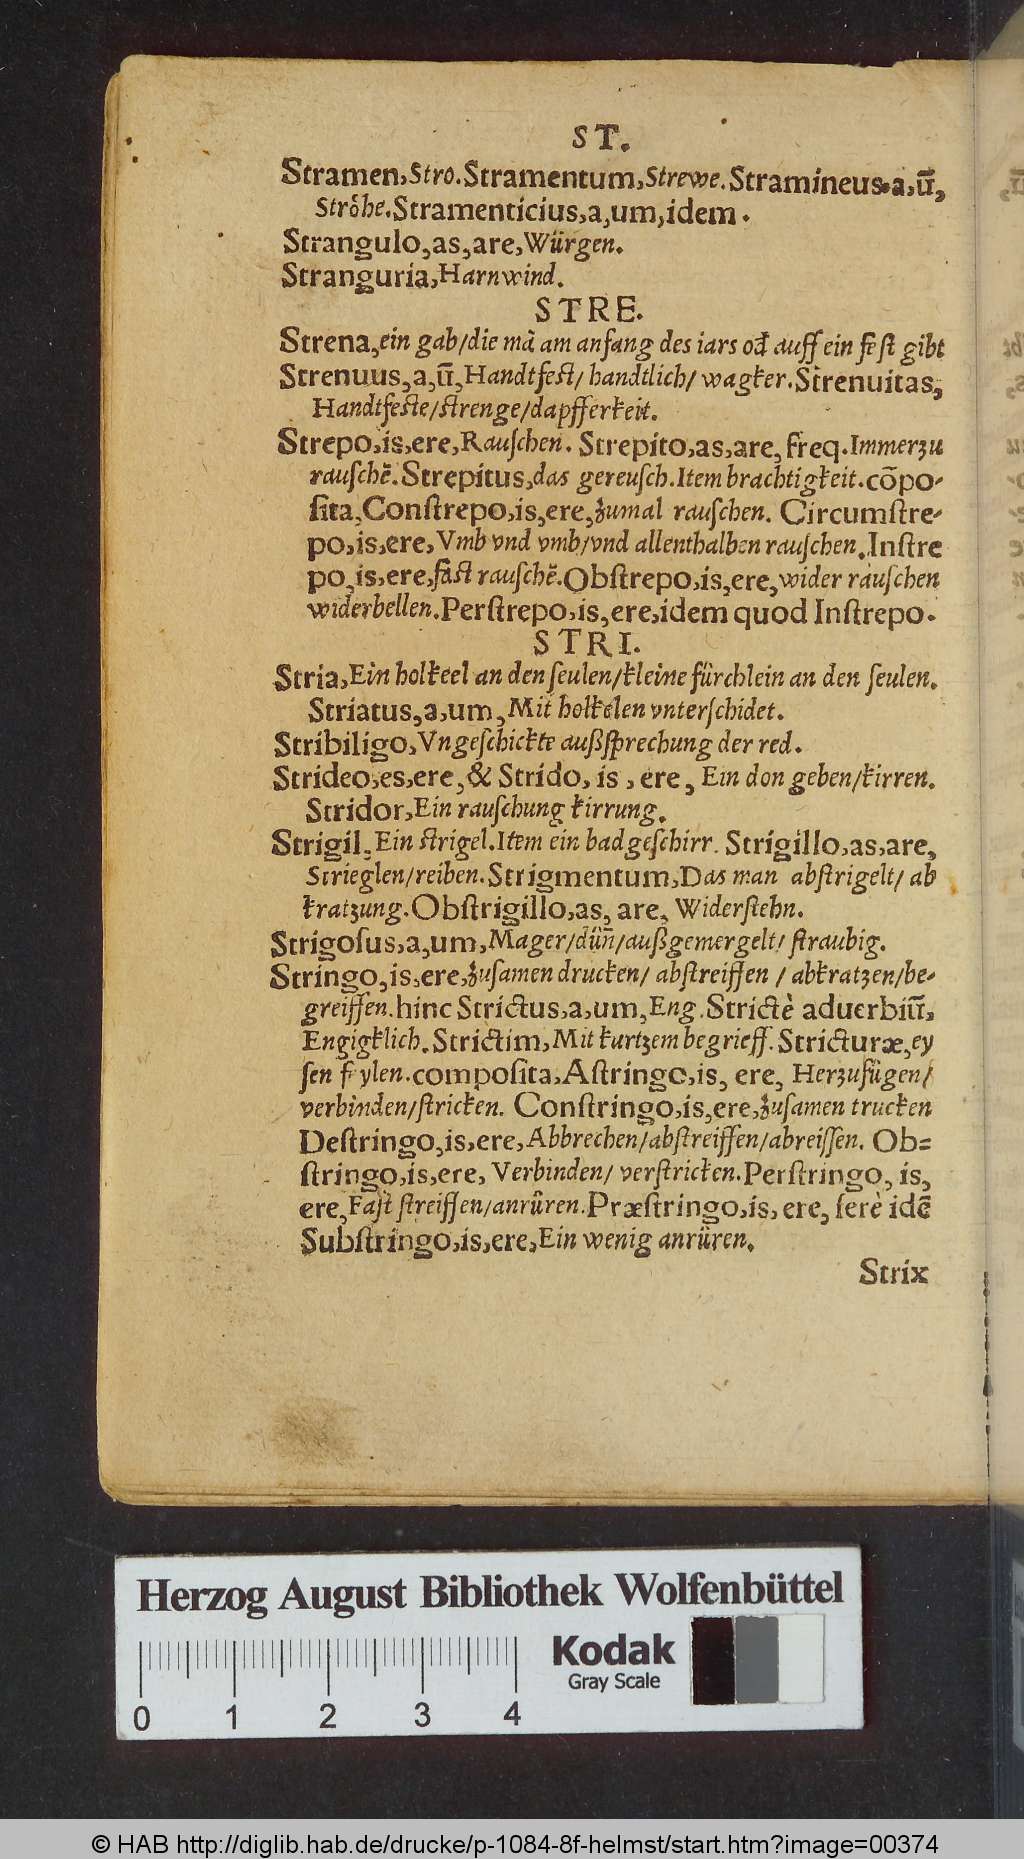 ST.
Stramen, Stro. Stramentum, Strewe. Stramineus, a, um̃,
Ströhe. Stramenticius, a, um, idem.
Strangulo, as, are, Würgen.
Stranguria, Harnwind.
STRE.
Strena, ein gab/die mã am anfang des iars od̃ auff ein fest gibt
Strenuus, a, ũ, Handtfest/ handtlich/ wagker. Strenuitas,
Handtfeste/strenge/dapfferkeit.
Strepo, is, ere, Rauſchen. Strepito, as, are, freq. Immerzu
rauſchẽ. Strepitus, das gereuſch. Item brachtigkeit. cõpo-
ſita, Conſtrepo, is, ere, zumal rauſchen. Circumſtre-
po, is, ere, Vmb vnd vmb/vnd allenthalben rauſchen. Inſtre
po, is, ere, faſt rauſchẽ. Obſtrepo, is, ere, wider rauſchen
widerbellen. Perſtrepo, is, ere, idem quod Inſtrepo.
STRI.
Stria, Ein holkeel an den ſeulen/kleine fürchlein an den ſeulen.
Striatus, a, um, Mit holkelen vnterſchidet.
Stribiligo, Vngeſchickte außſprechung der red.
Strideo, es, ere, & Strido, is, ere, Ein don geben/kirren.
Stridor, Ein rauſchung kirrung.
Strigil, Ein ſtrigel. Item ein badgeſchirr. Strigillo, as, are,
Strieglen/reiben. Strigmentum, Das man abſtrigelt/ ab
kratzung. Obſtrigillo, as, are, Widerſtehn.
Strigoſus, a, um, Mager/dün̄/außgemergelt/ ſtraubig.
Stringo, is, ere, zuſamen drucken/ abſtreiffen / abkratzen/be-
greiffen. hinc Strictus, a, um, Eng. Strictè aduerbiũ,
Engigklich. Strictim, Mit kurtzem begrieff. Stricturæ, ey
ſen feylen. compoſita, Aſtringo, is, ere, Herzufügen/
verbinden/ſtricken. Conſtringo, is, ere, zuſamen trucken
Deſtringo, is, ere, Abbrechen/abſtreiffen/abreiſſen. Ob=
ſtringo, is, ere, Verbinden/ verſtricken. Perſtringo, is,
ere, Faſt ſtreiffen/anrüren. Præſtringo, is, ere, ferè idẽ
Subſtringo, is, ere, Ein wenig anrüren.
Strix
Herzog August Bibliothek Wolfenbüttel
Kodak
Gray Scale
0 1 2 3 4
© HAB http://diglib.hab.de/drucke/p-1084-8f-helmst/start.htm?image=00374